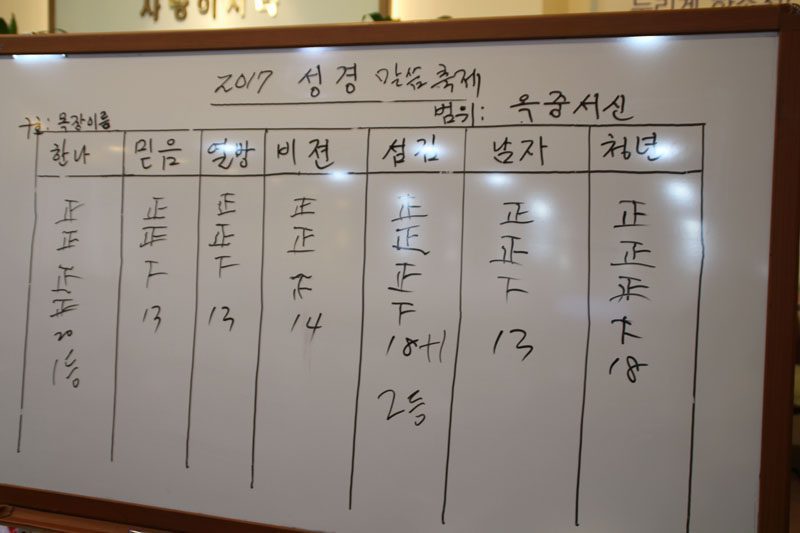 사랑이시라
2017 성경 말씀축제
범위: 옥중서신
구호: 목장이름
한나 믿음 열방 비전 섬김 남자 청년
正 正 正 正 正 正 正
正 正 正 正 正 正 正
正 下 下 正 正 下 正
正 13 13 14 下 13 下
20 18+1 18
1등 2등